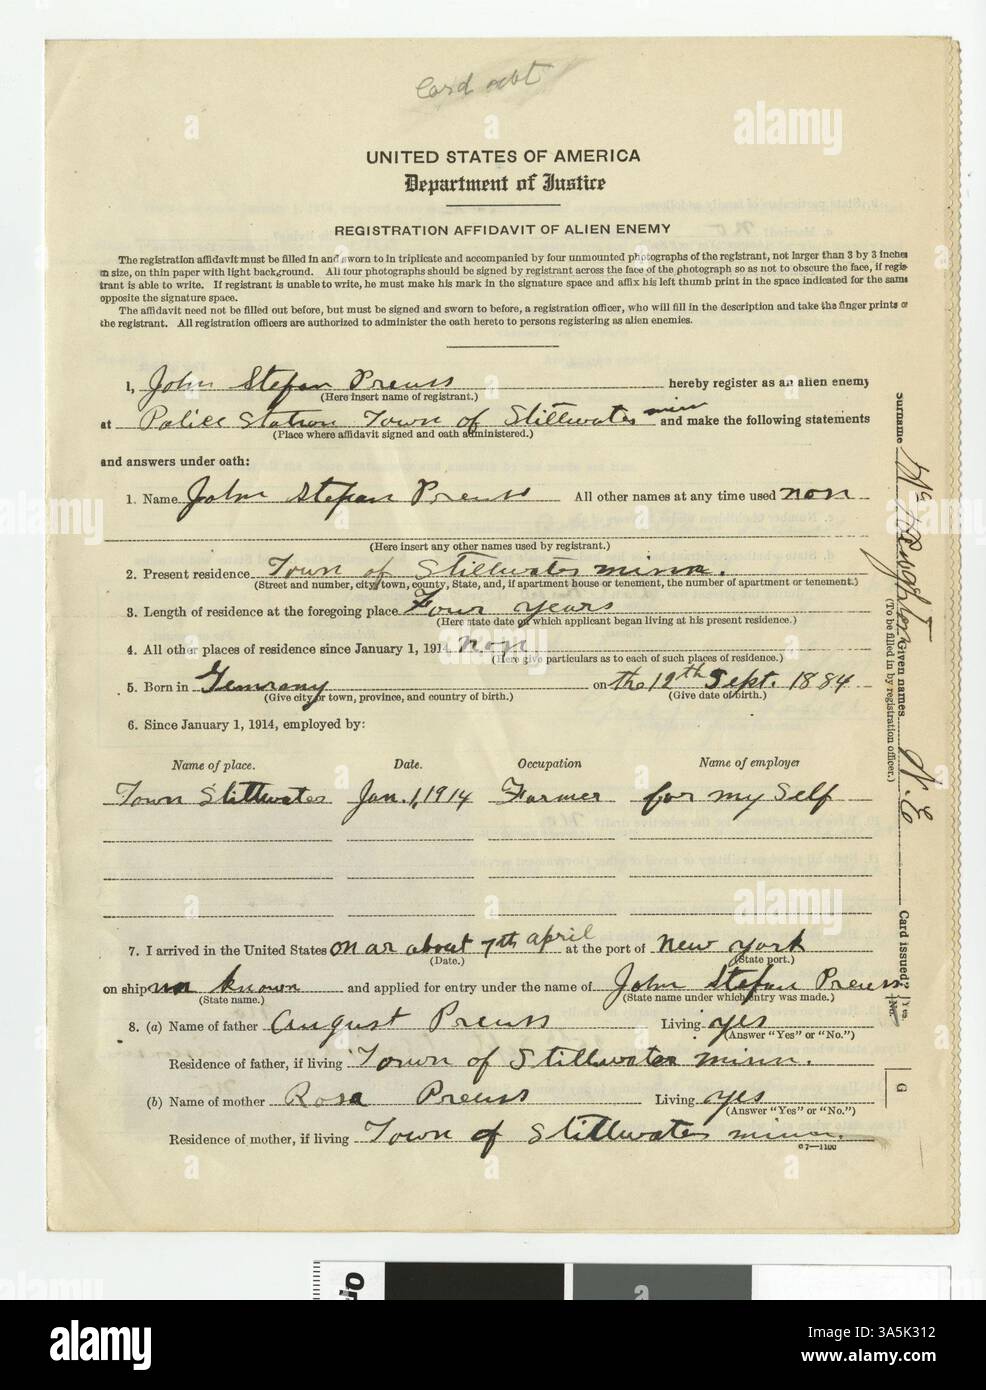 Card
UNITED STATES OF AMERICA
Department of Justice
REGISTRATION AFFIDAVIT OF ALIEN ENEMY
The registration affidavit must be filled in and sworn to in triplicate and accompanied by four unmounted photographs of the registrant, not larger than 3 by 3 inches
in size, on thin paper with light background. All four photographs should be signed by registrant across the face of the photograph so as not to obscure the face, if regis-
trant is able to write. If registrant is unable to write, he must make his mark in the signature space and affix his left thumb print in the space indicated for the same
opposite the signature space.
The affidavit need not be filled out before, but must be signed and sworn to before, a registration officer, who will fill in the description and take the finger prints of
the registrant. All registration officers are authorized to administer the oath hereto to persons registering as alien enemies.
I, John Stefan Preuss hereby register as an alien enemy
(Here insert name of registrant.)
at Police Station Town of Stillwater minn and make the following statements
(Place where affidavit signed and oath administered.)
and answers under oath:
1. Name John Stefan Preuss All other names at any time used non
(Here insert any other names used by registrant.)
2. Present residence Town of Stillwater minn.
(Street and number, city, town, county, State, and, if apartment house or tenement, the number of apartment or tenement.)
3. Length of residence at the foregoing place Four years
(Here state date on which applicant began living at his present residence.)
4. All other places of residence since January 1, 1914 non
(Here give particulars as to each of such places of residence.)
5. Born in Gemrany on the 12th Sept. 1884
(Give city or town, province, and country of birth.) (Give date of birth.)
6. Since January 1, 1914, employed by:
Name of place. Date. Occupation Name of employer
Town Stillwater Jan. 1, 1914 Farmer for my Self
7. I arrived in the United States on ar about 7th april at the port of new york
(Date.) (State port.)
on ship un known and applied for entry under the name of John Stefan Preuss
(State name.) (State name under which entry was made.)
8. (a) Name of father August Preuss Living yes
(Answer "Yes" or "No.")
Residence of father, if living Town of Stillwater minn.
(b) Name of mother Rosa Preuss Living yes
(Answer "Yes" or "No.")
Residence of mother, if living Town of Stillwater minn.
G7—1100
Surname Given names N.E Card issued? Yes. No.
(To be filled in by registration officer.)
G
alamy
Image ID: 3A5K312
www.alamy.com